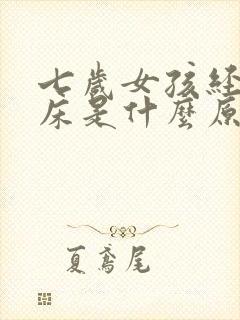 七歲女孩經
床是什麼原
夏鳶尾